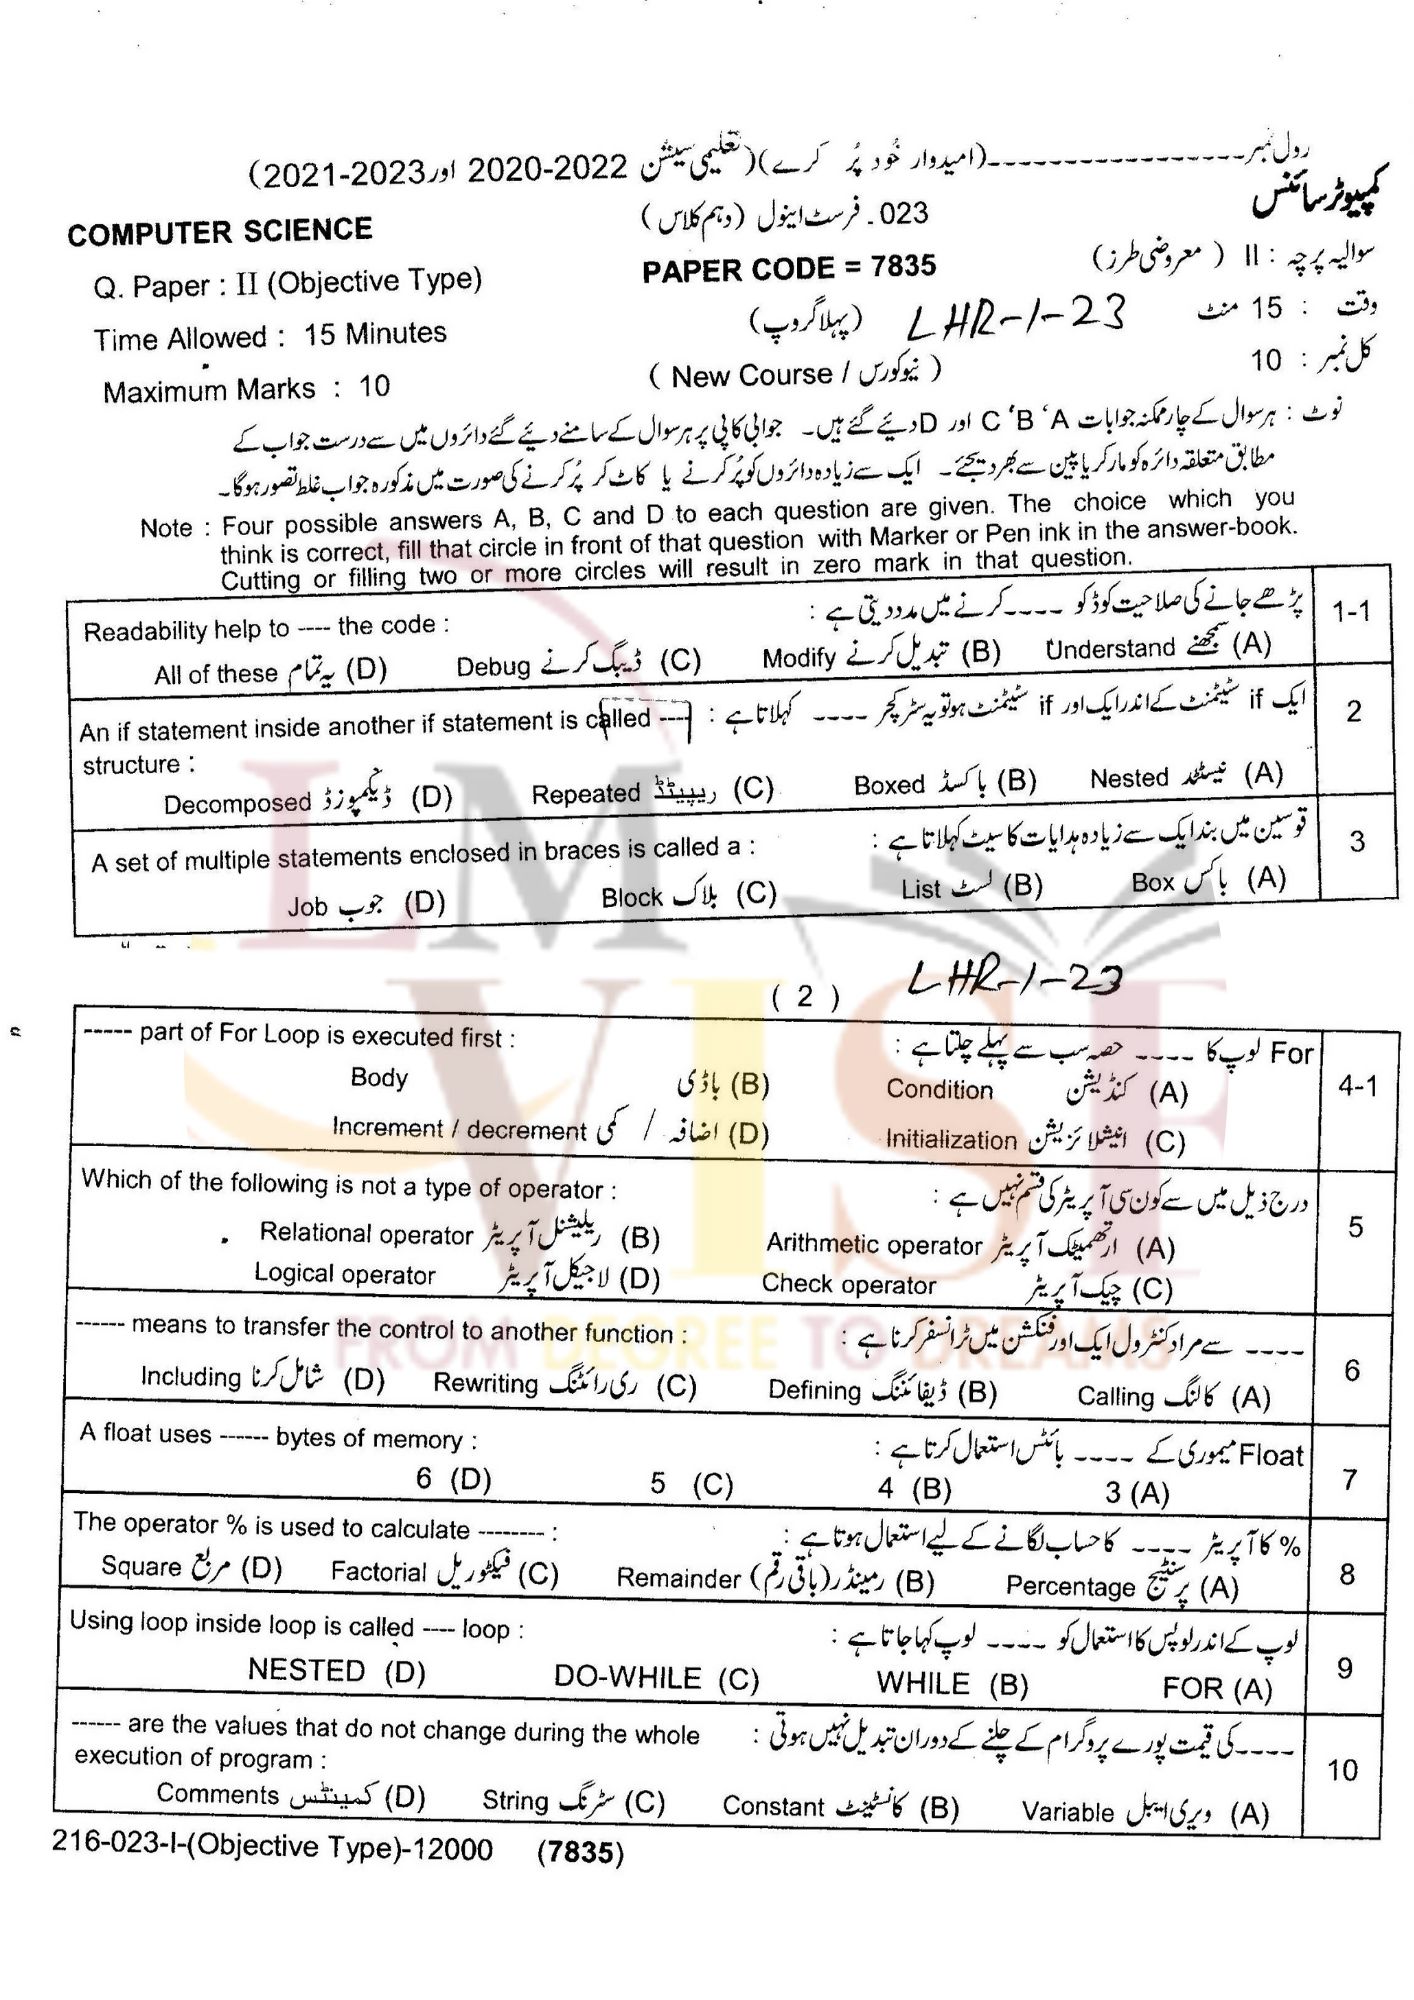 رول نمبر-----------------(امیدوار خُود پُر کرے)(تعلیمی سیشن 2022-2020 اور 2023-2021)
کمپیوٹر سائنس
COMPUTER SCIENCE
023۔ فرسٹ اینول (دہم کلاس)
سوالیہ پرچہ : II (معروضی طرز)
Q. Paper : II (Objective Type)
PAPER CODE = 7835
وقت : 15 منٹ
Time Allowed : 15 Minutes
(پہلا گروپ) LHR-1-23
کل نمبر : 10
Maximum Marks : 10
( New Course / نیو کورس )
نوٹ : ہر سوال کے چار ممکنہ جوابات A ‘ B ‘ C اور D دئیے گئے ہیں۔ جوابی کاپی پر ہر سوال کے سامنے دئیے گئے دائروں میں سے درست جواب کے
مطابق متعلقہ دائرہ کو مارکر یا پین سے بھر دیجئے۔ ایک سے زیادہ دائروں کو پُر کرنے یا کاٹ کر پُر کرنے کی صورت میں مذکورہ جواب غلط تصور ہوگا۔
Note : Four possible answers A, B, C and D to each question are given. The choice which you
think is correct, fill that circle in front of that question with Marker or Pen ink in the answer-book.
Cutting or filling two or more circles will result in zero mark in that question.
1-1 پڑھے جانے کی صلاحیت کوڈ کو ---- کرنے میں مدد دیتی ہے :
Readability help to ---- the code :
(A) سمجھنے Understand (B) تبدیل کرنے Modify (C) ڈیبگ کرنے Debug (D) یہ تمام All of these
2 ایک if سٹیٹمنٹ کے اندر ایک اور if سٹیٹمنٹ ہو تو یہ سٹرکچر ---- کہلاتا ہے :
An if statement inside another if statement is called ----
structure :
(A) نیسٹڈ Nested (B) باکسڈ Boxed (C) ریپیٹڈ Repeated (D) ڈیکمپوزڈ Decomposed
3 قوسین میں بند ایک سے زیادہ ہدایات کا سیٹ کہلاتا ہے :
A set of multiple statements enclosed in braces is called a :
(A) باکس Box (B) لسٹ List (C) بلاک Block (D) جوب Job
LMVISE
( 2 ) LHR-1-23
4-1 For لوپ کا ---- حصہ سب سے پہلے چلتا ہے :
----- part of For Loop is executed first :
(A) کنڈیشن Condition (B) باڈی Body
(C) انیشلائزیشن Initialization (D) اضافہ / کمی Increment / decrement
5 درج ذیل میں سے کون سی آپریٹر کی قسم نہیں ہے :
Which of the following is not a type of operator :
(A) ارتھمیٹک آپریٹر Arithmetic operator (B) ریلیشنل آپریٹر Relational operator
(C) چیک آپریٹر Check operator (D) لاجیکل آپریٹر Logical operator
6 ---- سے مراد کنٹرول ایک اور فنکشن میں ٹرانسفر کرنا ہے :
------ means to transfer the control to another function :
FROM DEGREE TO DREAMS
(A) کالنگ Calling (B) ڈیفائننگ Defining (C) ری رائٹنگ Rewriting (D) شامل کرنا Including
7 Float میموری کے ---- بائٹس استعمال کرتا ہے :
A float uses ------ bytes of memory :
(A) 3 (B) 4 (C) 5 (D) 6
8 % کا آپریٹر ---- کا حساب لگانے کے لیے استعمال ہوتا ہے :
The operator % is used to calculate -------- :
(A) پرسنٹیج Percentage (B) رمینڈر (باقی رقم) Remainder (C) فیکٹوریل Factorial (D) مربع Square
9 لوپ کے اندر لوپس کا استعمال کو ---- لوپ کہا جاتا ہے :
Using loop inside loop is called ---- loop :
(A) FOR (B) WHILE (C) DO-WHILE (D) NESTED
10 ---- کی قیمت پورے پروگرام کے چلنے کے دوران تبدیل نہیں ہوتی :
------ are the values that do not change during the whole
execution of program :
(A) ویری ایبل Variable (B) کانسٹینٹ Constant (C) سٹرنگ String (D) کمینٹس Comments
216-023-I-(Objective Type)-12000 (7835)